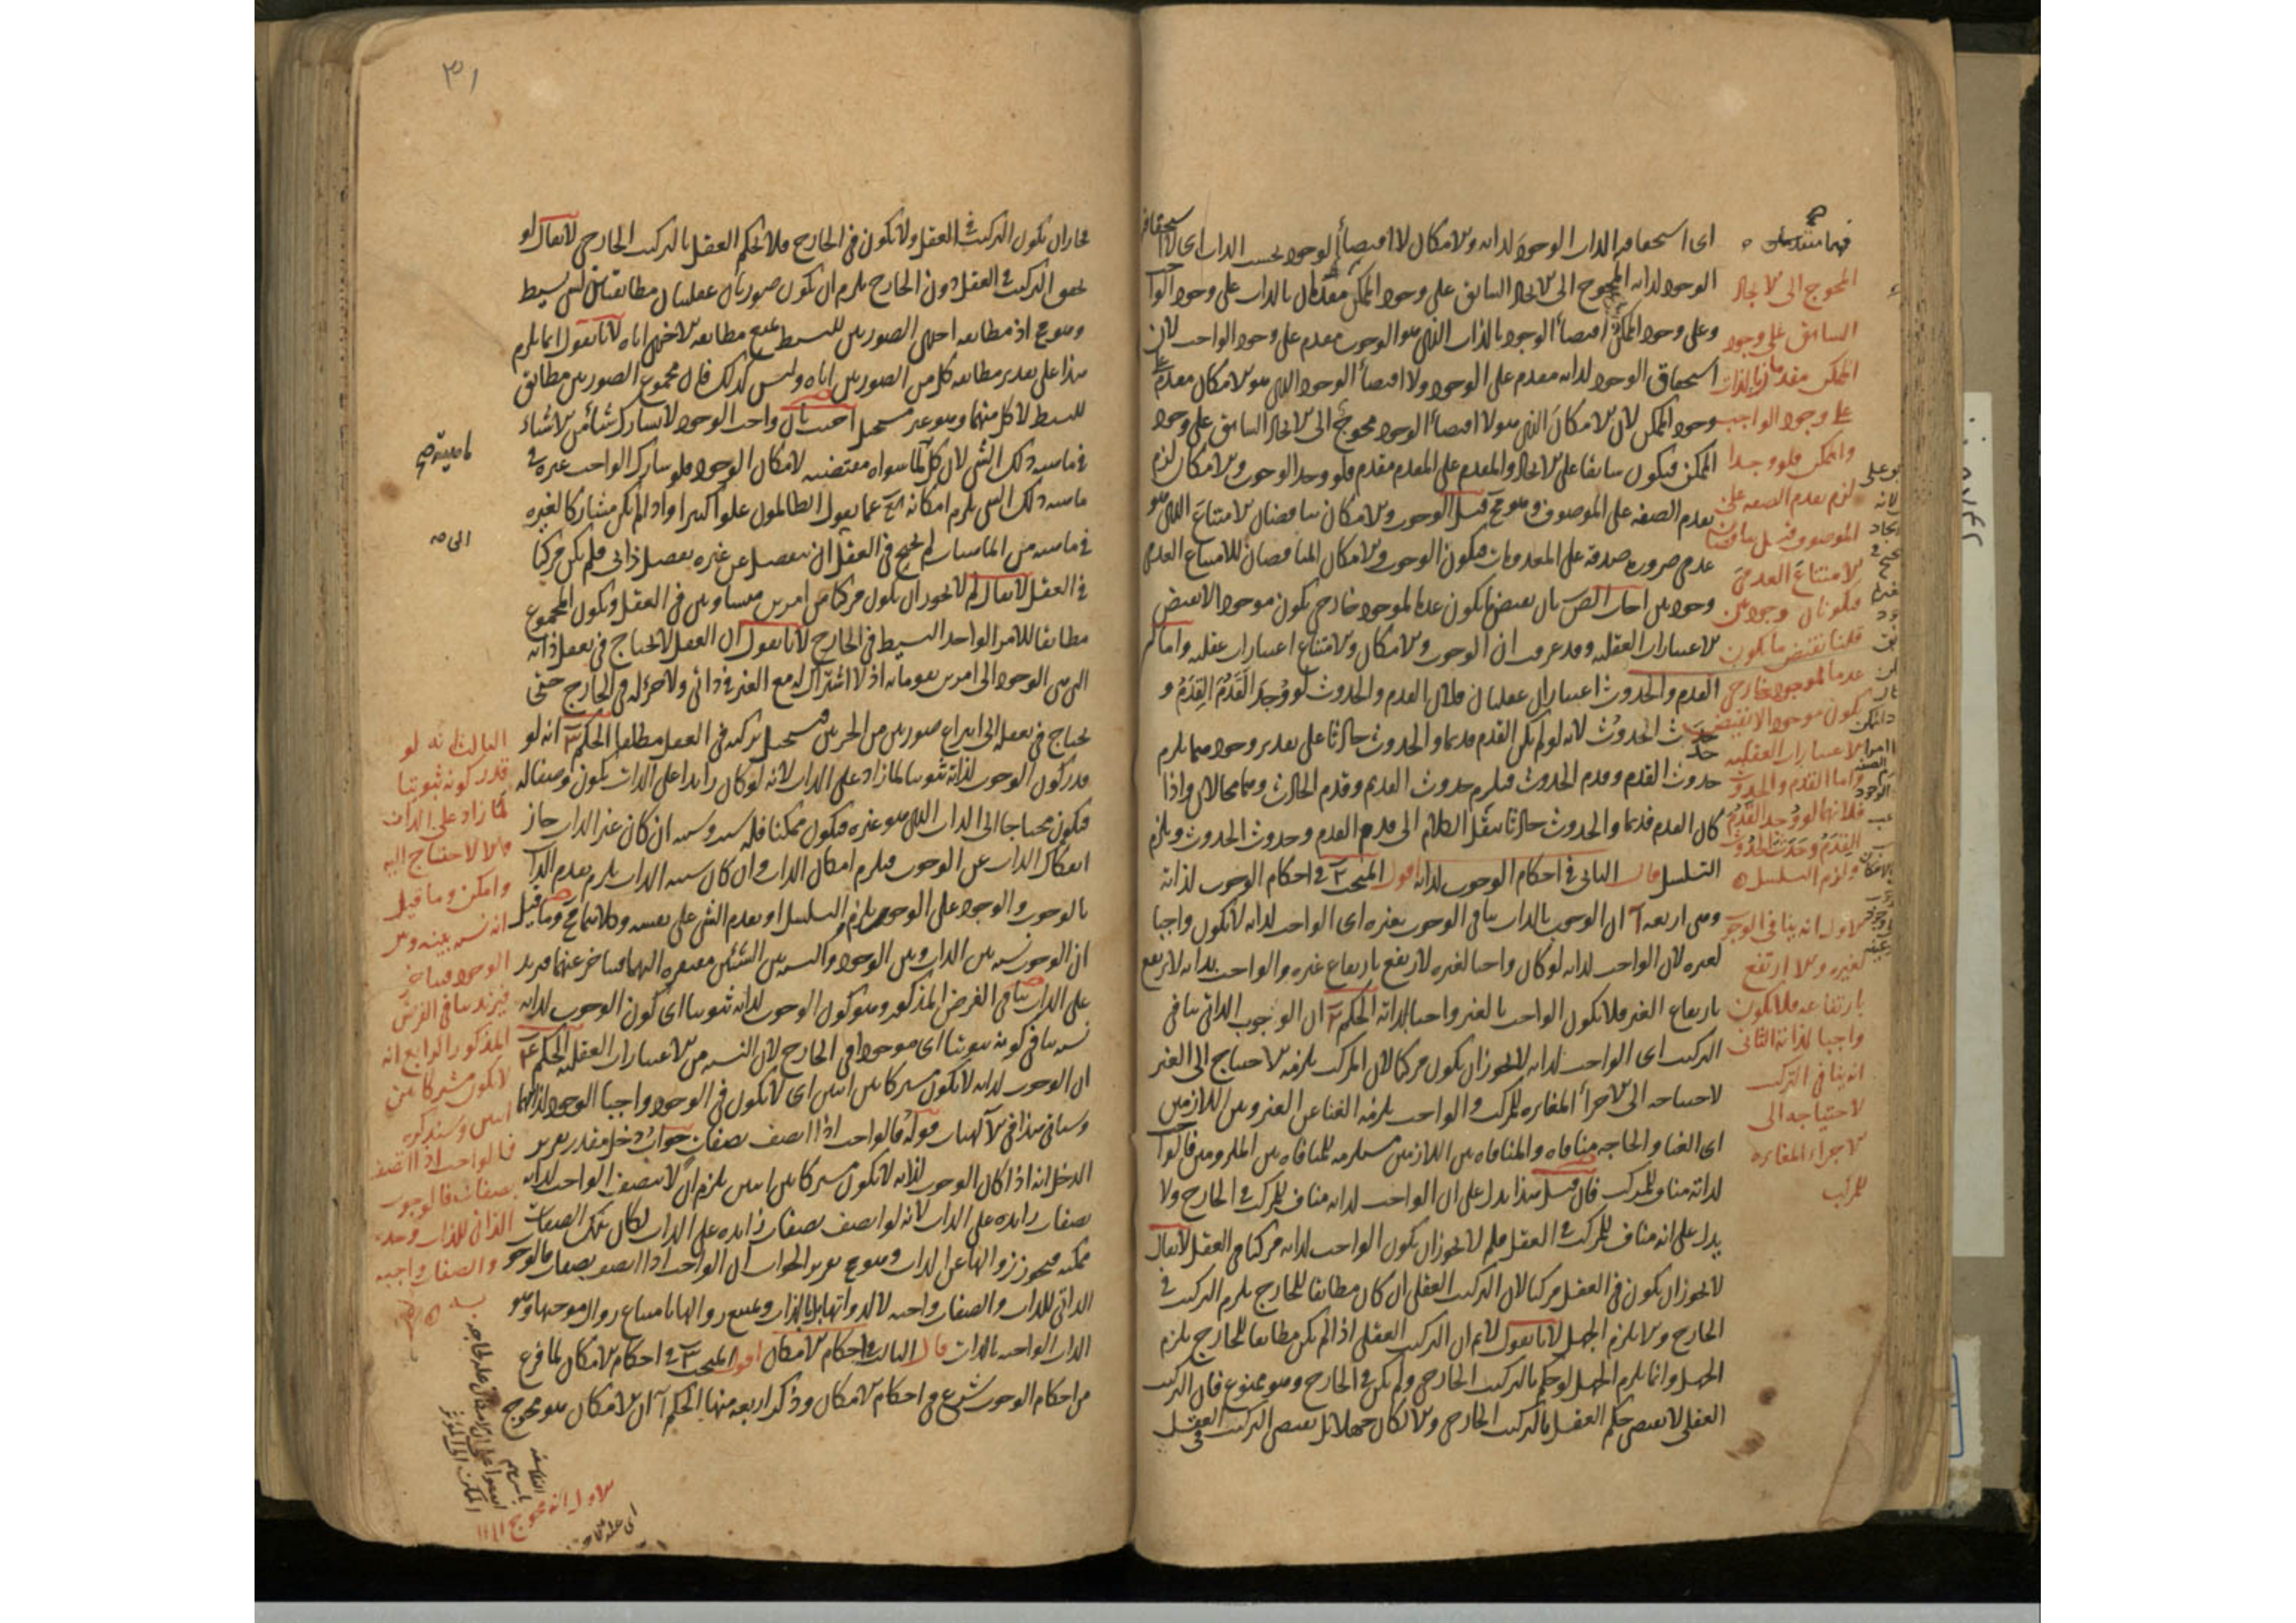 اى استحقاقية الذات الوجود لذاته والامكان لا اقتضاء الوجود بحسب الذات اى لا استحقاقية
الوجود لذاته المحوج الى الايجاد السابق على وجود الممكن مقدمان بالذات على وجود الواجب
وعلى وجود الممكن اقتضاء الوجود بالذات الذى هو الوجوب مقدم على وجود الواجب لان
استحقاق الوجود لذاته مقدم على الوجود ولا اقتضاء الوجود الذى هو الامكان مقدم على
وجود الممكن لان الامكان الذى هو لا اقتضاء الوجود محوج الى الايجاد السابق على وجود
الممكن فيكون سابقا على الايجاد والمقدم على المقدم مقدم فلو وجد الوجوب والامكان لزم
تقدم الصفة على الموصوف وهو مح قيل الوجوب والامكان يناقضان الامتناع الذى هو
عدمى ضرورة صدقه على المعدومات فيكون الوجوب والامكان المناقضان للامتناع العدمى
وجوديين اجاب المص بان نقيض ما يكون عدما لموجود خارجى يكون موجودا لا نقيض
الاعتبارات العقلية وقد عرفت ان الوجوب والامكان والامتناع اعتبارات عقلية واما
القدم والحدوث اعتباران عقليان فلان القدم والحدوث لو وجد القدم القدم و
حدث الحدوث لانه لو لم يكن القدم قديما والحدوث حادثا على تقدير وجودهما يلزم
حدوث القدم وقدم الحدوث فيلزم حدوث القديم وقدم الحادث وهما محالان واذا
كان القدم قديما والحدوث حادثا ننقل الكلام الى قدم القدم وحدوث الحدوث ويلزم
التسلسل قال الثانى فى احكام الوجوب لذاته اقول المبحث ٢ فى احكام الوجوب لذاته
وهى اربعة آ ان الوجوب بالذات ينافى الوجوب بغيره اى الواجب لذاته لا يكون واجبا
لغيره لان الواجب لذاته لو كان واجبا لغيره لارتفع بارتفاع غيره والواجب بذاته لا يرتفع
بارتفاع الغير فلا يكون الواجب بالغير واجبا لذاته الحكم ٢ ان الوجوب الذاتى ينافى
التركيب اى الواجب لذاته لا يجوز ان يكون مركبا لان المركب يلزمه الاحتياج الى الغير
لاحتياجه الى الاجزاء المغايرة للمركب والواجب يلزمه الغنا عن الغير وبين اللازمين
اى الغنا والحاجة منافاة والمنافاة بين اللازمين مستلزمة للمنافاة بين الملزومين فالواجب
لذاته مناف للمركب فان قيل هذا يدل على ان الواجب لذاته مناف للمركب فى الخارج ولا
يدل على انه مناف للمركب فى العقل فلم لا يجوز ان يكون الواجب لذاته مركبا فى العقل لا يقال
لا يجوز ان يكون فى العقل مركبا لان التركيب العقلى ان كان مطابقا للخارج يلزم التركيب فى
الخارج والا يلزم الجهل لانا نقول لا نم ان التركيب العقلى اذا لم يكن مطابقا للخارج يلزم
الجهل وانما يلزم الجهل لو حكم بالتركيب الخارجى ولم يكن فى الخارج وهو ممنوع فان التركيب
العقلى لا يقتضى حكم العقل بالتركيب الخارجى والا لكان جهلا بل يقتضى التركيب فى العقل
المحوج الى الايجاد
السابق على وجود
الممكن مقدمان بالذات
على وجود الواجب
والممكن فلو وجدا
لزم تقدم الصفة على
الموصوف قيل يناقضان
الامتناع العدمى
فيكونان وجوديين
قلنا نقيض ما يكون
عدما لموجود خارجى
يكون موجودا لا نقيض
الاعتبارات العقلية
واما القدم والحدوث
فلانهما لو وجد القدم
القدم وحدث الحدوث
ولزم التسلسل
الاول انه ينافى الوجوب
لغيره والا ارتفع
بارتفاعه فلا يكون
واجبا لذاته الثانى
انه ينافى التركيب
لاحتياجه الى
الاجزاء المغايرة
للمركب
٣١
فجاز ان يكون التركيب فى العقل ولا يكون فى الخارج فلا يحكم العقل بالتركيب الخارجى لا يقال لو
تحقق التركيب فى العقل دون الخارج يلزم ان يكون صورتان عقليتان مطابقتان لشئ بسيط
وهو مح اذ مطابقة احدى الصورتين للبسيط يمنع مطابقة الاخرى اياه لانا نقول انما يلزم
هذا على تقدير مطابقة كل من الصورتين اياه وليس كذلك فان مجموع الصورتين مطابق
للبسيط لا كل منهما وهو غير مستحيل اجيب بان واجب الوجود لا يشارك شيئا من الاشياء
فى ماهية ذلك الشئ لان كل ما سواه مقتضية لامكان الوجود فلو شارك الواجب غيره فى
ماهية ذلك الشئ يلزم امكانه تع عما يقول الظالمون علوا كبيرا واذا لم يكن مشاركا لغيره
فى ماهية من الماهيات لم يحتج فى العقل ان ينفصل عن غيره بفصل ذاتى فلم يكن مركبا
فى العقل لا يقال لم لا يجوز ان يكون مركبا من امرين متساويين فى العقل ويكون المجموع
مطابقا للامر الواحد البسيط فى الخارج لانا نقول ان العقل لا يحتاج فى تعقل ذاته
التى هى الوجود الى امرين يقومانه اذ لا اشتراك له مع الغير فى ذاتى ولا جزء له فى الخارج حتى
يحتاج فى تعقله الى ابداع صورتين من الجزئين فيستحيل تركبه فى العقل مطلقا الحكم ٣ انه لو
قدر كون الوجوب لذاته ثبوتيا لما زاد على الذات لانه لو كان زايدا على الذات يكون وصفا له
فيكون محتاجا الى الذات الذى هو غيره فيكون ممكنا فله سبب وسببه ان كان غير الذات جاز
انفكاك الذات عن الوجوب فيلزم امكان الذات وان كان سببه الذات يلزم تقدم الذات
بالوجوب والوجود على الوجوب ويلزم التسلسل او تقدم الشئ على نفسه وكلاهما مح وما قيل
ان الوجوب نسبة بين الذات وبين الوجود والنسبة بين الشيئين مفتقرة اليهما فيتاخر عنهما فيزيد
على الذات ينافى الفرض المذكور وهو كون الوجوب لذاته ثبوتيا اى كون الوجوب لذاته
نسبة ينافى كونه ثبوتيا اى موجودا فى الخارج لان النسبة من الاعتبارات العقلية الحكم ٤
ان الوجوب لذاته لا يكون مشتركا بين اثنين اى لا يكون فى الوجود واجبا الوجود لذاتهما
وسياتى هذا فى الآلهيات قوله فالواجب اذا اتصف بصفات جواب دخل مقدر تقرير
الدخل انه اذا كان الوجوب لذاته لا يكون مشتركا بين اثنين يلزم ان لا يتصف الواجب لذاته
بصفات زايدة على الذات لانه لو اتصف بصفات زايدة على الذات لكان تلك الصفات
ممكنة فيجوز زوالها عن الذات وهو مح تقرير الجواب ان الواجب اذا اتصف بصفات فالوجوب
الذاتى للذات والصفات واجبة لا لذواتها بل بالذات ويمتنع زوالها بامتناع زوال موجبها وهو
الذات الواجبة بالذات قال الثالث فى احكام الامكان اقول المبحث ٣ فى احكام الامكان لما فرغ
من احكام الوجوب شرع فى احكام الامكان وذكر اربعة منها الحكم آ ان الامكان هو محوج
الثالث انه لو
قدر كونه ثبوتيا
لما زاد على الذات
والا لاحتاج اليه
وامكن وما قيل
انه نسبة بينه وبين
الوجود فيتاخر
فيزيد ينافى الفرض
المذكور الرابع انه
لا يكون مشتركا بين
اثنين وسنذكره
فالواجب اذا اتصف
بصفات فالوجوب
الذاتى للذات وحده
والصفات واجبة
به
الاول انه محوج